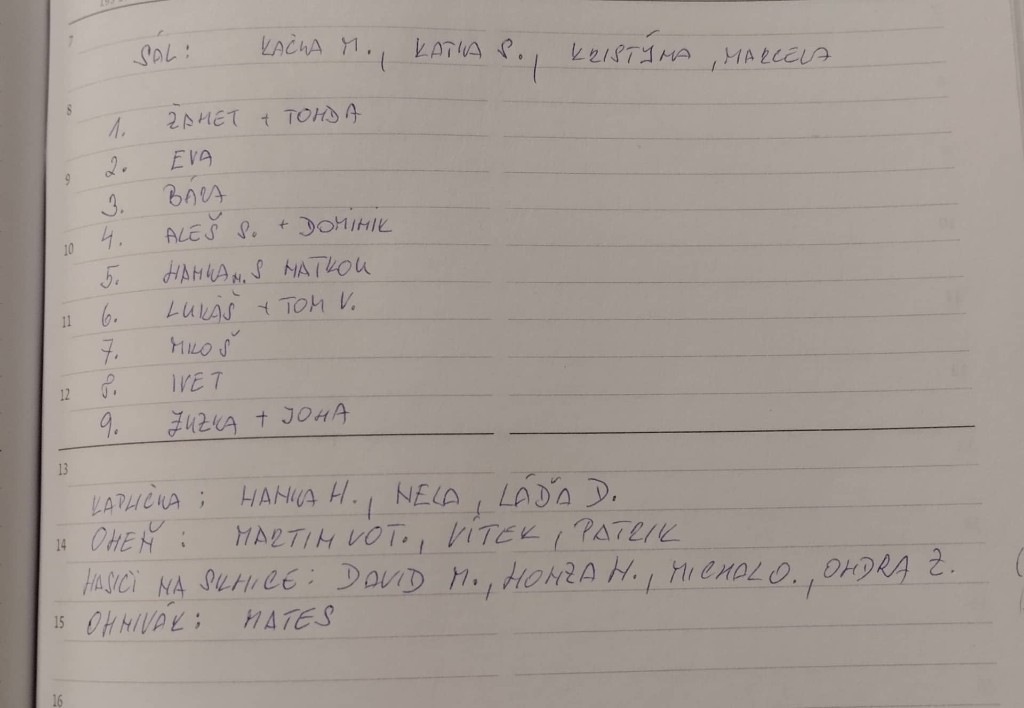 7
SÁL: KAČKA M., KATKA S., KRISTÝNA, MARCELA
8
1. ŽANET + TONDA
2. EVA
9
3. BÁRA
10
4. ALEŠ S. + DOMINIK
5. HANKA M. S MATKOU
11
6. LUKÁŠ + TOM V.
7. MILOŠ
12
8. IVET
9. ZUZKA + JONA
13
KAPLIČKA: HANKA H., NELA, LÁĎA D.
14
OHEŇ: MARTIN VOT., VÍTEK, PATRIK
HASIČI NA SILNICE: DAVID M., HONZA H., MICHAL O., ONDRA Z.
15
OHNIVÁK: MATES
16